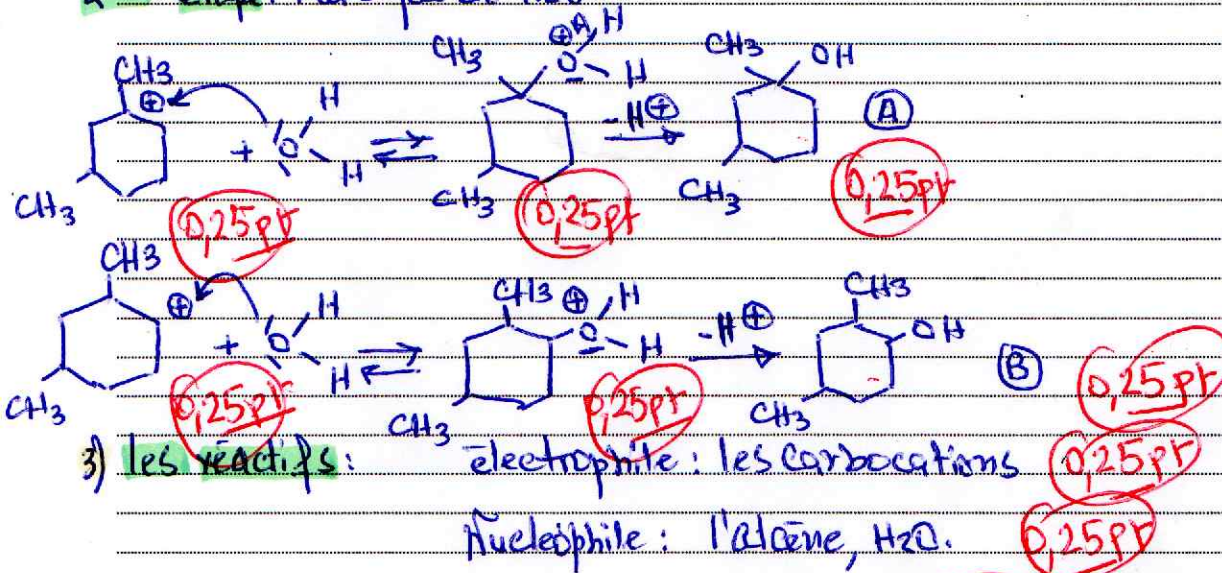 CH3 ⊕ H
CH3 O H CH3 OH
CH3 ⊕ H -H⊕ Ⓐ
+ O H ⇌
CH3 CH3 CH3
0,25pt 0,25pt 0,25pt
CH3 CH3 ⊕ H CH3
⊕ H O -H⊕ OH
+ O H ⇌ H Ⓑ 0,25pt
CH3 0,25pt CH3 0,25pt CH3
3) les réactifs: électrophile: les carbocations 0,25pt
Nucléophile: l'alcène, H2O. 0,25pt